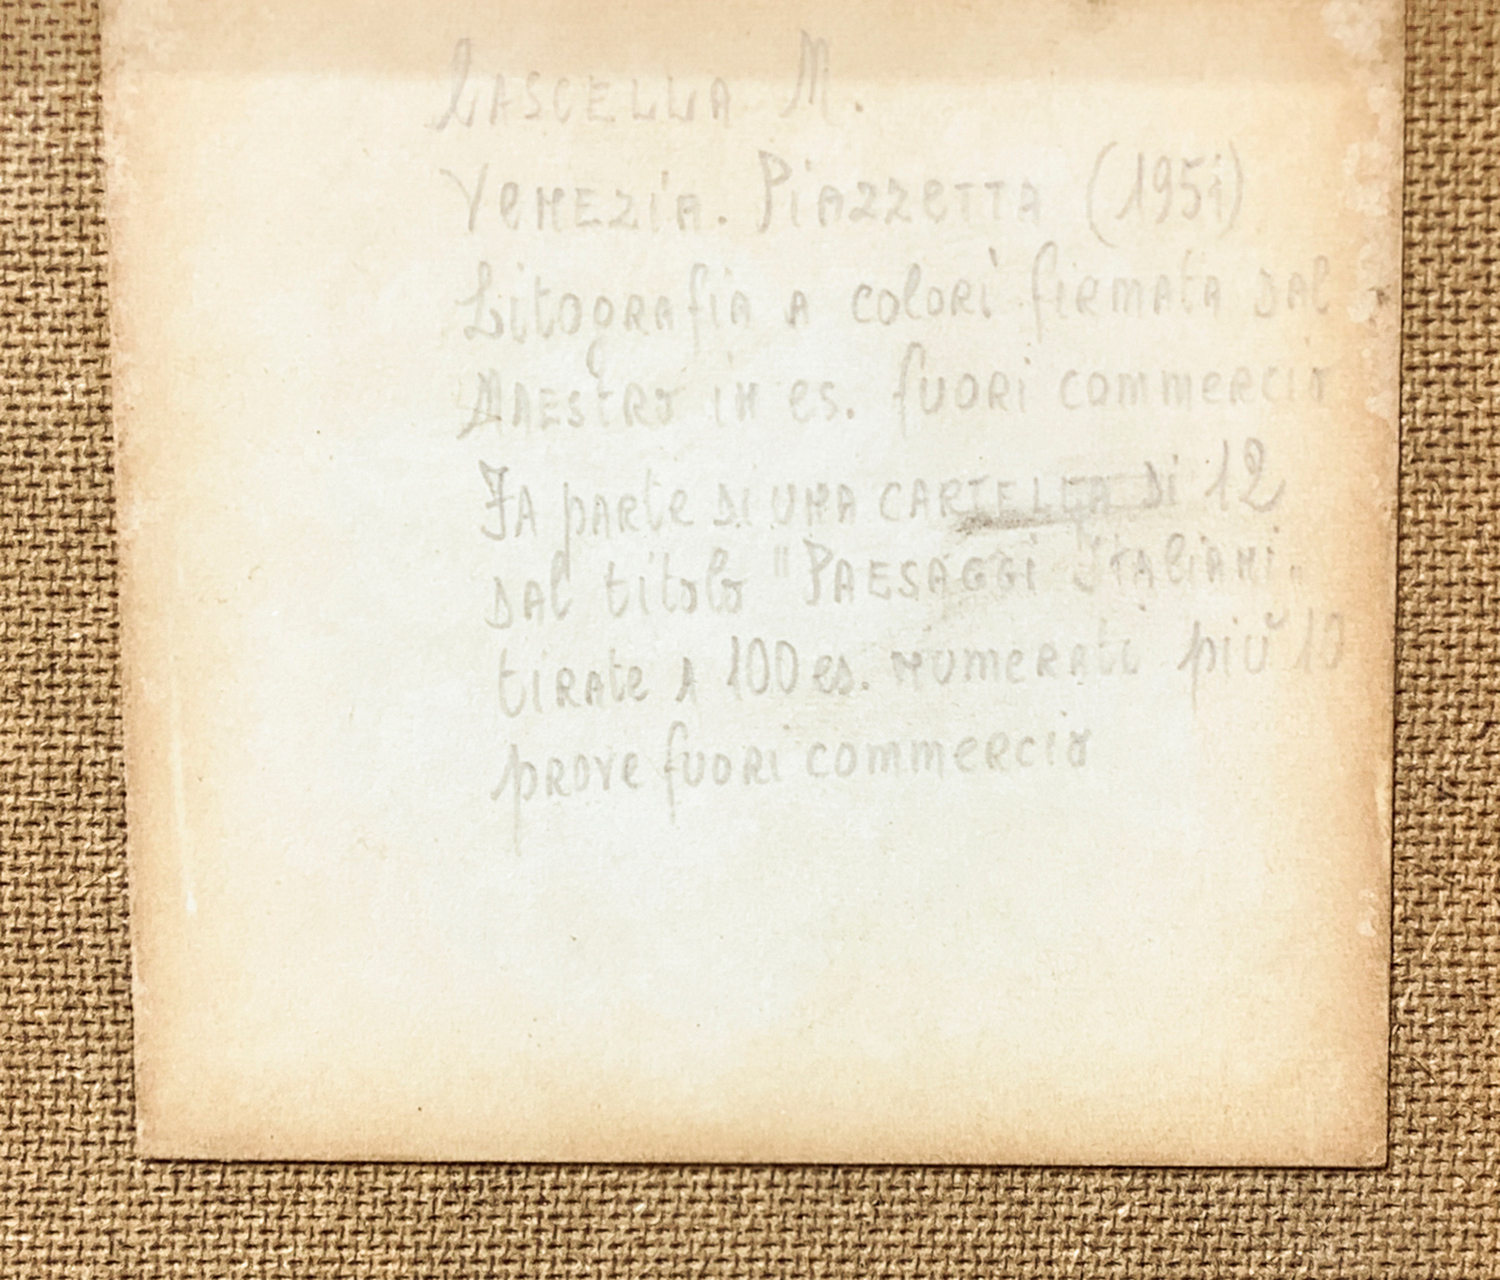 CASCELLA M.
VENEZIA. PIAZZETTA (1951)
Litografia a colori firmata dal
Maestro in es. fuori commercio
Fa parte di una cartella di 12
dal titolo "PAESAGGI ITALIANI"
tirate a 100 es. numerati più 10
prove fuori commercio